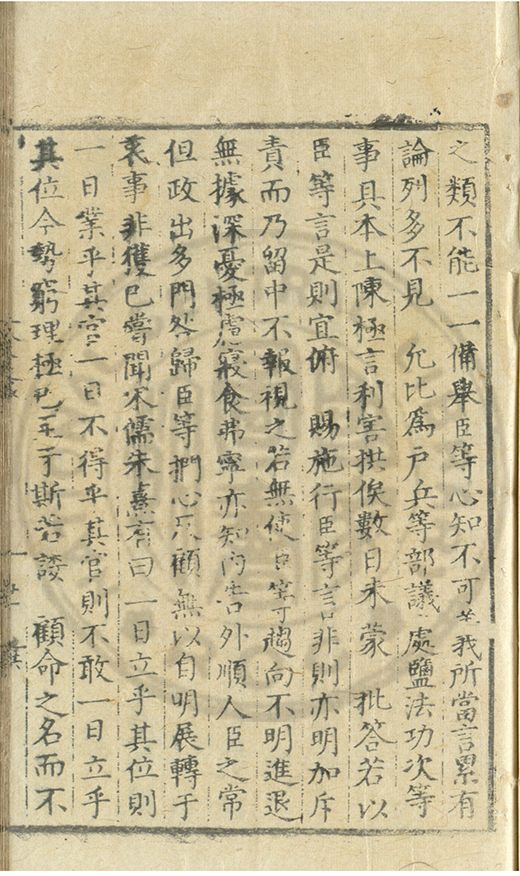 之類不能一一備舉臣等心知不可義我所當言累有
論列多不見　允比爲戶兵等部議處鹽法功次等
事具本上陳極言利害拱俟數日未蒙　批答若以
臣等言是則宜俯　賜施行臣等言非則亦明加斥
責而乃留中不報視之若無使臣等趨向不明進退
無據深憂極慮寢食弗寧亦知內告外順人臣之常
但政出多門咎歸臣等捫心反顧無以自明展轉于
衷事非獲已嘗聞宋儒朱熹有曰一日立乎其位則
一日業乎其官一日不得乎其官則不敢一日立乎
其位今勢窮理極已至于斯若諉　顧命之名而不